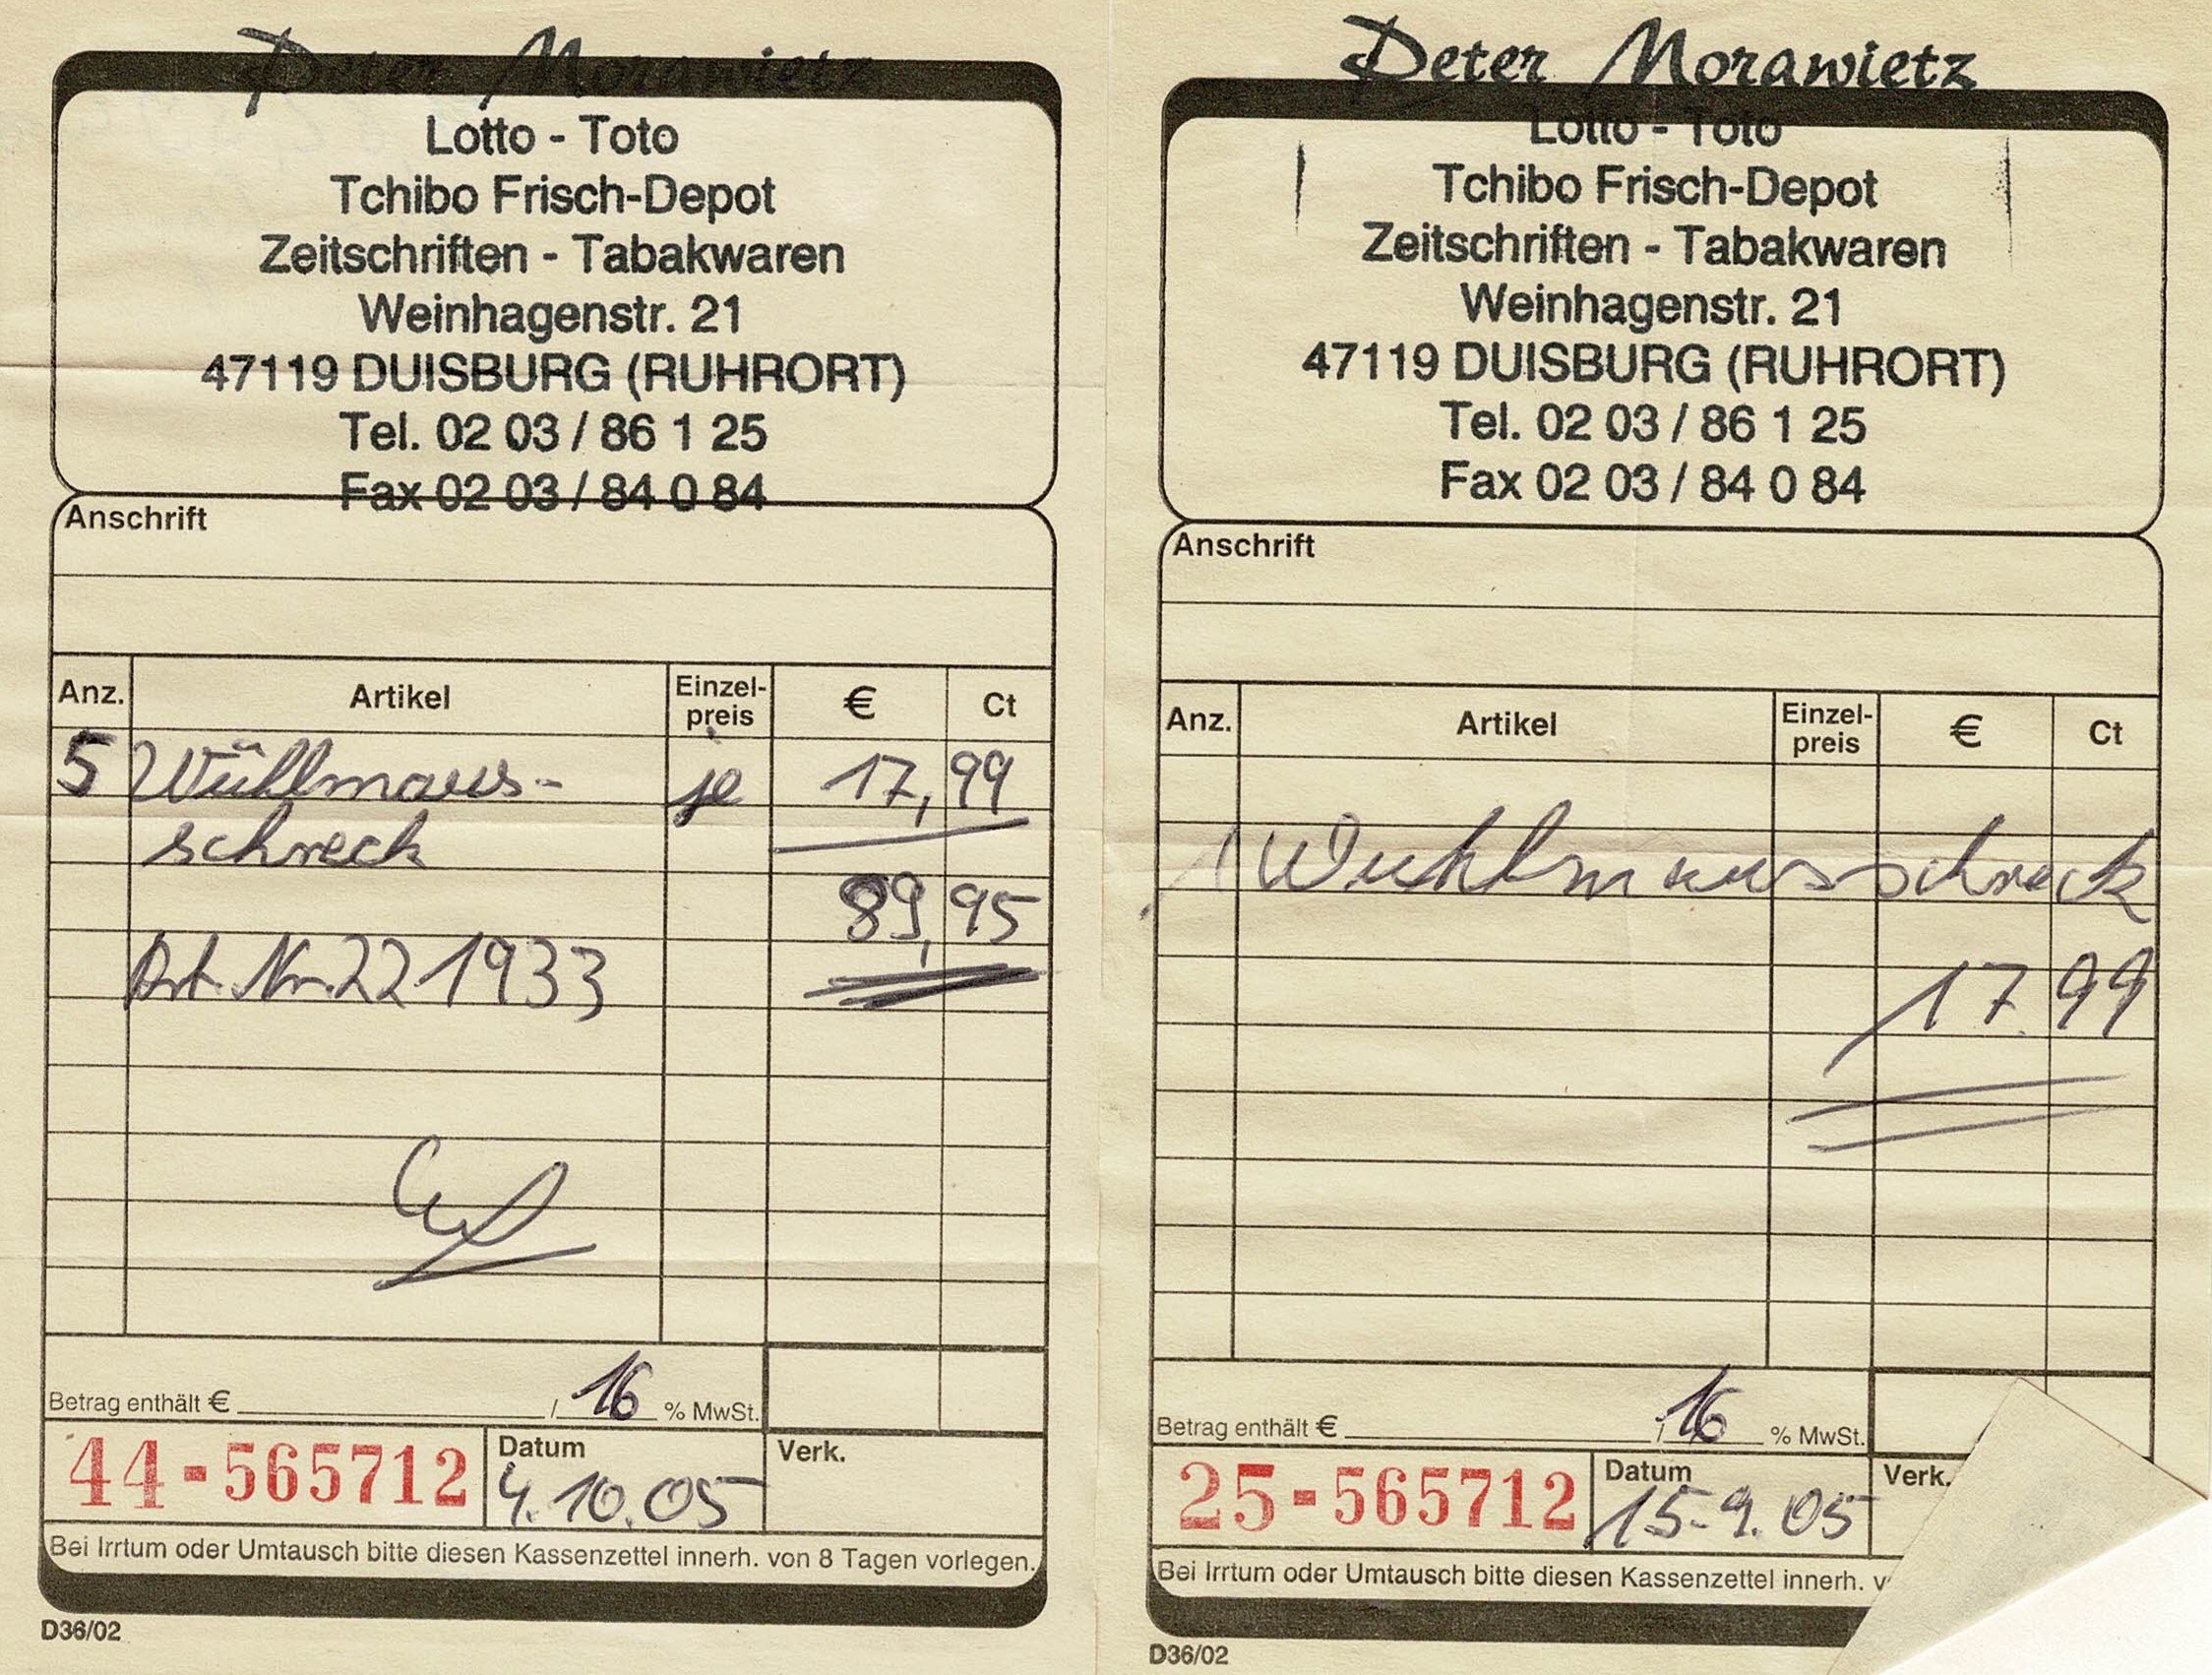 Peter Morawietz
Lotto - Toto
Tchibo Frisch-Depot
Zeitschriften - Tabakwaren
Weinhagenstr. 21
47119 DUISBURG (RUHRORT)
Tel. 02 03 / 86 1 25
Fax 02 03 / 84 0 84
Anschrift
Anz. Artikel Einzel-preis € Ct
5 Wühlmaus- je 17,99
schreck
89,95
Art. Nr. 221933
Betrag enthält € / 16 % MwSt.
44-565712 Datum 4.10.05 Verk.
Bei Irrtum oder Umtausch bitte diesen Kassenzettel innerh. von 8 Tagen vorlegen.
D36/02
Peter Morawietz
Lotto - Toto
Tchibo Frisch-Depot
Zeitschriften - Tabakwaren
Weinhagenstr. 21
47119 DUISBURG (RUHRORT)
Tel. 02 03 / 86 1 25
Fax 02 03 / 84 0 84
Anschrift
Anz. Artikel Einzel-preis € Ct
1 Wuhlmausschreck
17.99
Betrag enthält € / 16 % MwSt.
25-565712 Datum 15.9.05 Verk.
Bei Irrtum oder Umtausch bitte diesen Kassenzettel innerh. v
D36/02